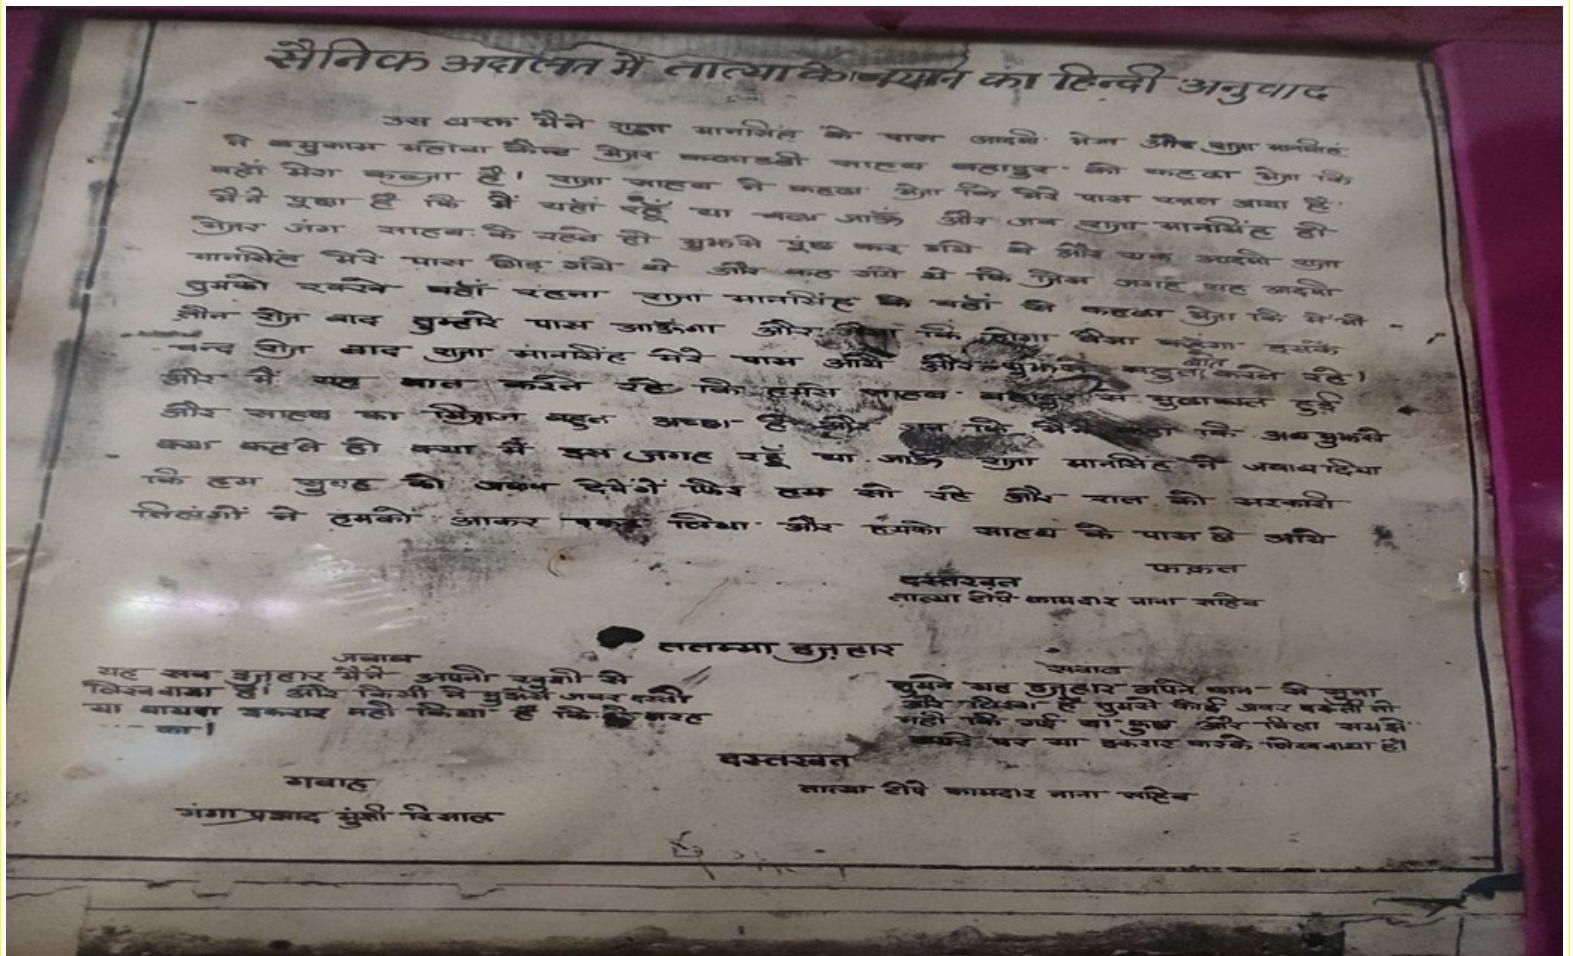 सैनिक अदालत में तात्या के बयान का हिन्दी अनुवाद
उस वक्त मैने राजा मानसिंह के पास आदमी भेजा और राजा मानसिंह
ने बमुकाम महोवा कैम्प मेजर साहब बहादुर को कहला भेजा कि
वहाँ मेरा कब्जा है। राजा साहब ने कहला भेजा कि मेरे पास आया है
मैने पूछा है कि मैं यहां रहूँ या चला जाऊं और जब राजा मानसिंह ही
मेजर जंग साहब के रहने ही मुझसे पूंछ कर गये थे और एक आदमी राजा
मानसिंह मेरे पास छोड़ गये थे और कह गये थे कि जिस जगह यह आदमी
तुमको रक्खे वहाँ रहना राजा मानसिंह के वहाँ से कहला भेजा कि मै भी
तीन रोज बाद तुम्हारे पास आऊंगा और कि होगा वैसा करूंगा इसके
चन्द रोज बाद राजा मानसिंह मेरे पास आये और मुझसे बहुत बात करते रहे।
और मैं यह बात करते रहे कि हमारी साहब बहादुर से मुलाकात हुई
और साहब का मिजाज बहुत अच्छा है और कि मैने कहा कि अब मुझसे
क्या कहते हो क्या मैं इस जगह रहूँ या जाऊं राजा मानसिंह ने जवाब दिया
कि हम सुबह को जवाब देवेंगे फिर हम सो रहे और रात को सरकारी
तिलंगों ने हमको आकर पकड़ लिया और हमको साहब के पास ले आये
फक़त
दस्तखत
तात्या टोपे कामदार नाना साहिब
ततम्मा इज़हार
जवाब
यह सब इज़हार मैने अपनी खुशी से
लिखवाया है। और किसी ने मुझसे जबरदस्ती
या वायदा इकरार नही किया है कि तरह
का।
सवाल
तुमने यह इज़हार अपने कान से सुना
और लिखा है तुमसे कोई जबरदस्ती तो
नही कि गई या कुछ और बिला समझे
वायदे पर या इकरार करके लिखवाया है।
दस्तखत
तात्या टोपे कामदार नाना साहिब
गवाह
गंगा प्रसाद मुंशी रिसाल